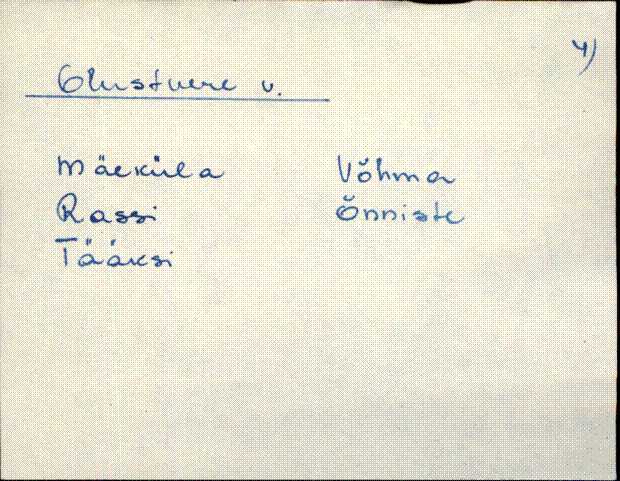 4)
Olustvere v.
Mäeküla
Rassi
Tääksi
Võhma
Õnniste